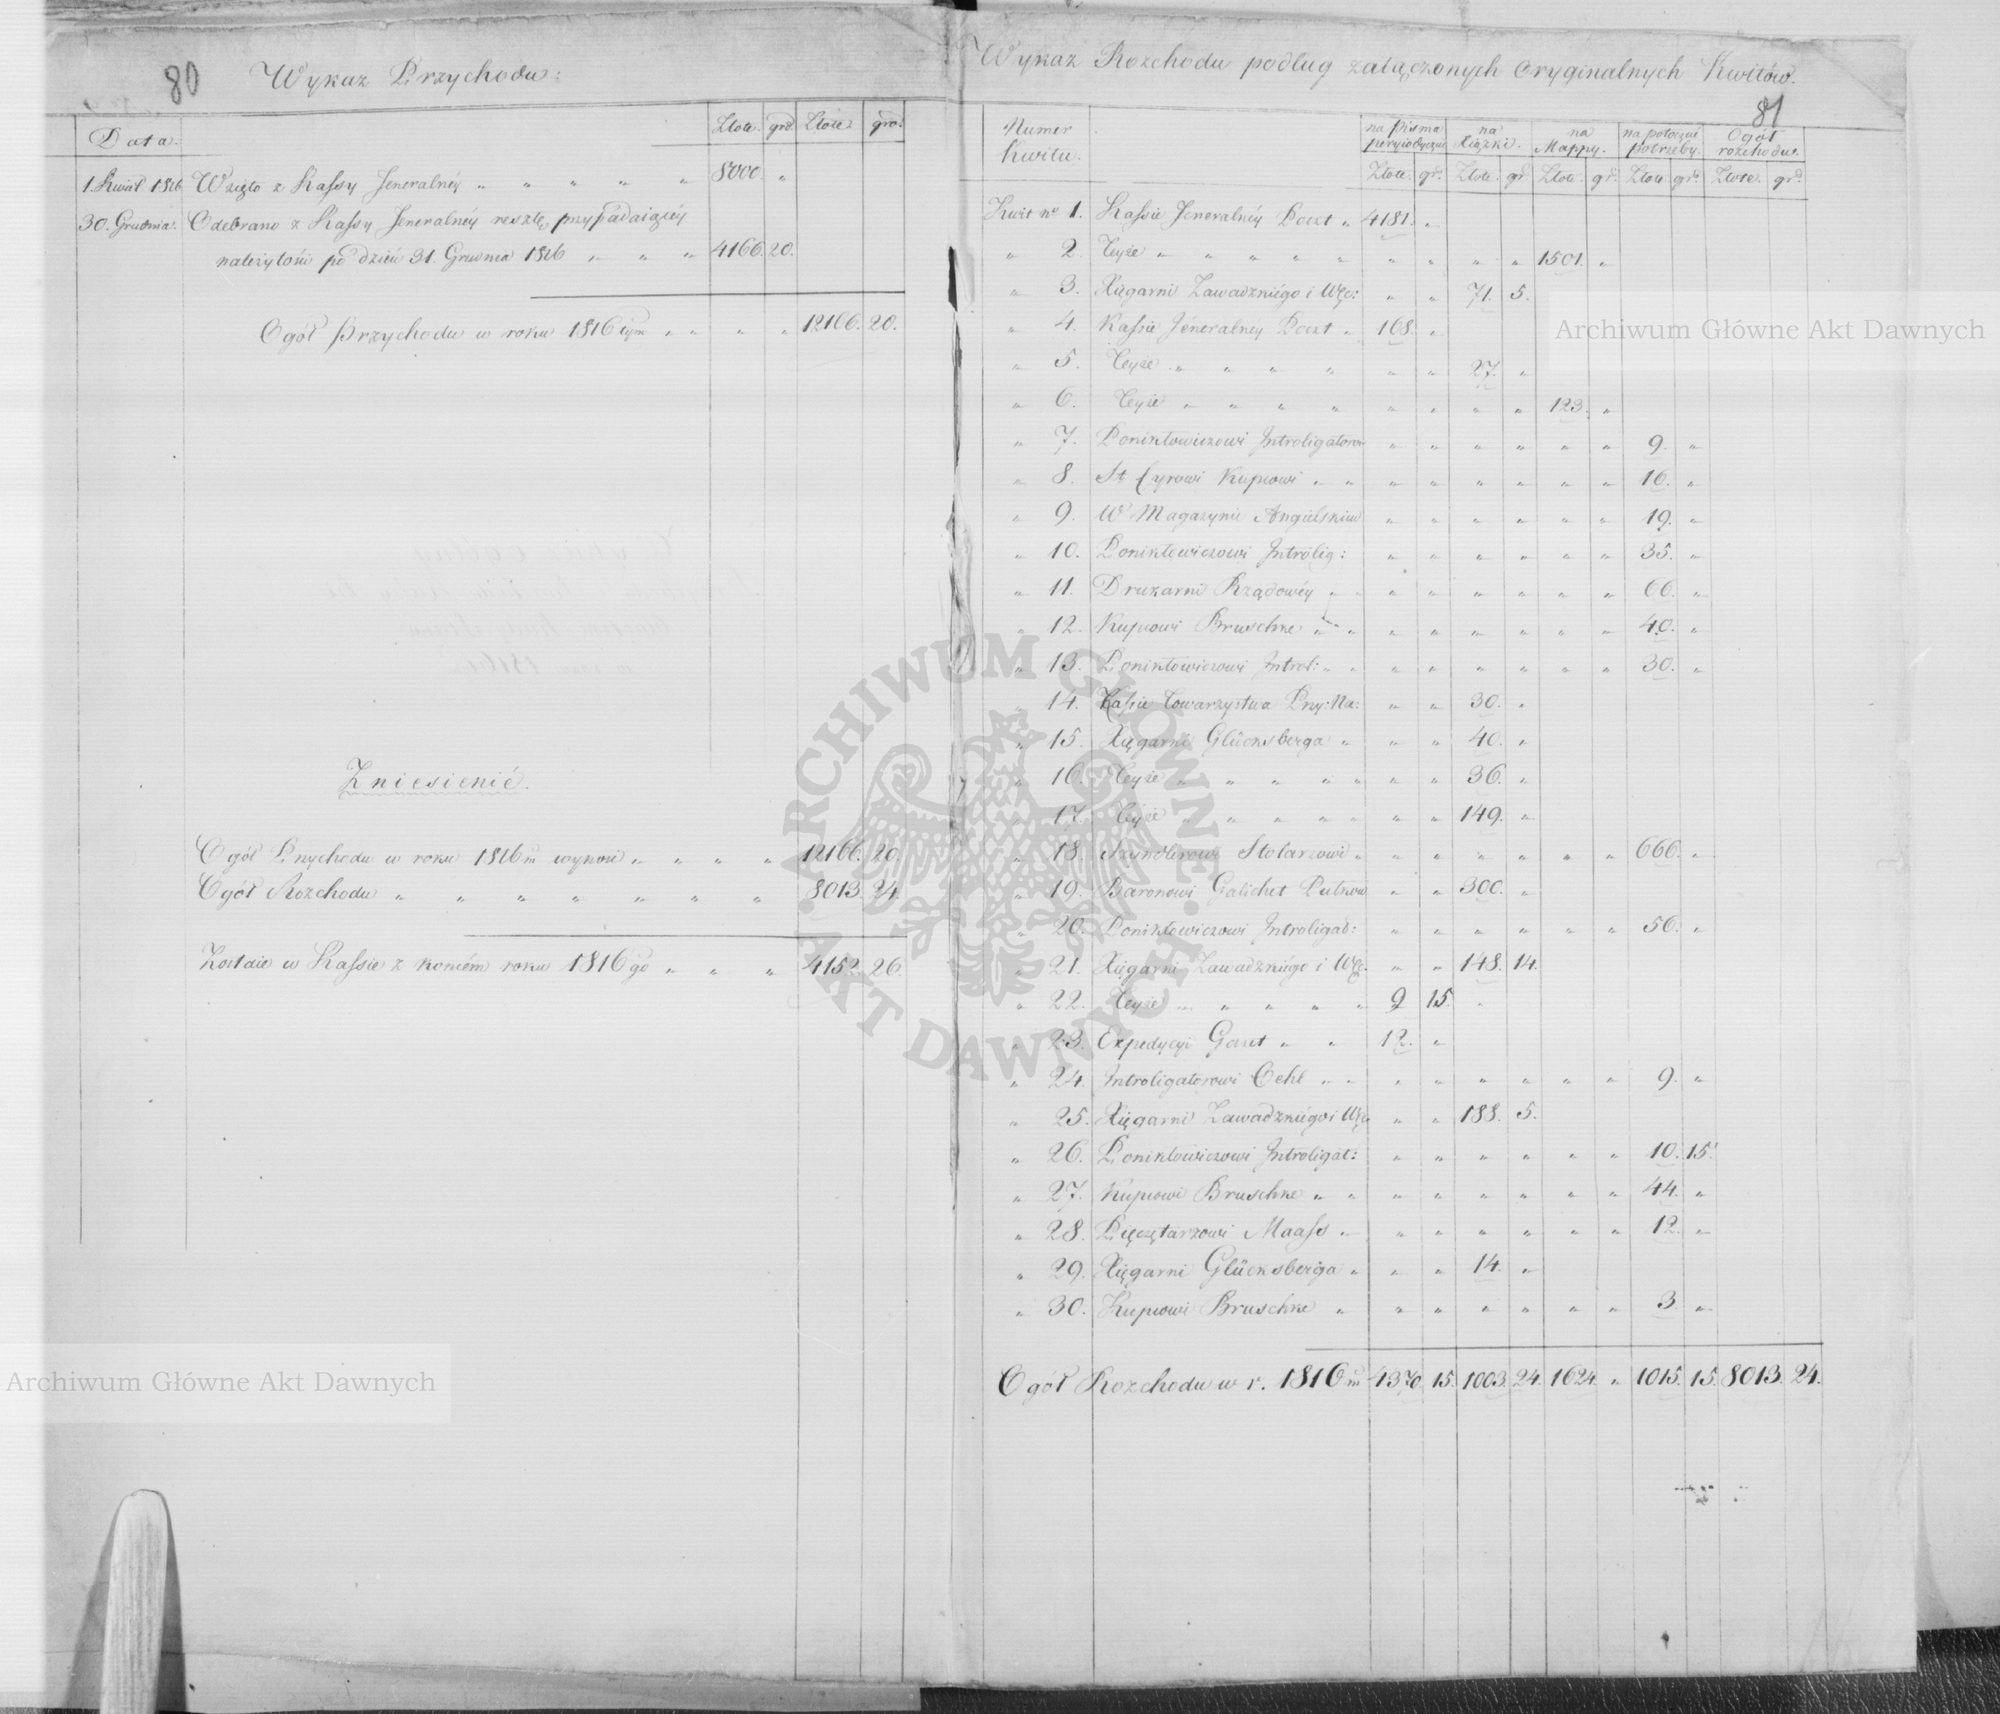 80
Wykaz Przychodu:
Data. Złote. grо. Złote. gro.
1. Kwiet 1816 Wzięto z Kassy Jeneralnéy " " " " " 8000. "
30. Grudnia. Odebrano z Kassy Jeneralnéy resztę przypadaiącéy
należytości po dzień 31. Grudnia 1816 " " " 4166. 20.
Ogół Przychodu w roku 1816tym " " " " 12166. 20.
Zniesienié.
Ogół Przychodu w roku 1816m wynosi " " " " 12166. 20.
Ogół Rozchodu " " " " " " " 8013. 24.
Zostaie w Kassie z koncém roku 1816go " " " 4152. 26.
Wykaz Rozchodu podług załączonych oryginalnych Kwitów.
81
Numer Kwitu. na Pisma peryiodyczne na Xiążki. na Mappy. na potoczne potrzeby. Ogół rozchodu.
Złote. gr. Złote. gr. Złote. gr. Złote gr. Złote. gr.
Kwit no 1. Kassie Jeneralnéy Poczt " 4181. "
" 2. Teyże " " " " " " " " " 1501. "
" 3. Xięgarni Zawadzkiégo i Węc: " " 71. 5.
" 4. Kassie Jéneralnéy Poczt " 168. "
" 5. Teyże " " " " " " 27. "
" 6. Teyże " " " " " " " " 123. "
" 7. Poniktowiczowi Introligatoro: " " " " " " 9. "
" 8. St Cyrowi Kupcowi " " " " " " " " 16. "
" 9. W Magazynie Angielskim " " " " " " 19. "
" 10. Poniktowiczowi Introlig: " " " " " " 35. "
" 11. Drukarni Rządowéy " " " " " " " " 66. "
" 12. Kupcowi Bruschke " " " " " " " " 40. "
" 13. Poniktowiczowi Introl: " " " " " " " " 30. "
" 14. Kassie Towarzystwa Przy: Na: " " 30. "
" 15. Xięgarni Glücksberga " " " 40. "
" 16. Teyże " " " " " " " 36. "
" 17. Teyże " " " " " " " 149. "
" 18. Szyndlerowi Stolarzowi " " " " " " " 666. "
" 19. Baronowi Galichet Pułkow " " 300. "
" 20. Poniktowiczowi Introligat: " " " " " " 56. "
" 21. Xięgarni Zawadzkiégo i Węc. " " 148. 14.
" 22. Teyże " " " " " 9 15.
" 23. Expedycyi Gazet " " 12. "
" 24. Introligatorowi Oehl " " " " " " " " 9. "
" 25. Xięgarni Zawadzkiégo i Węc " " 188. 5.
" 26. Poniktowiczowi Introligat: " " " " " " 10. 15.
" 27. Kupcowi Bruschke " " " " " " " " 44. "
" 28. Pieczętarzowi Maass " " " " " " " 12. "
" 29. Xięgarni Glücksberga " " " 14. "
" 30. Kupcowi Bruschke " " " " " " " 3. "
Ogół Rozchodu w r. 1816m 4370. 15. 1003. 24. 1624. " 1015. 15. 8013. 24.
Archiwum Główne Akt Dawnych
Archiwum Główne Akt Dawnych
ARCHIWUM GŁÓWNE AKT DAWNYCH